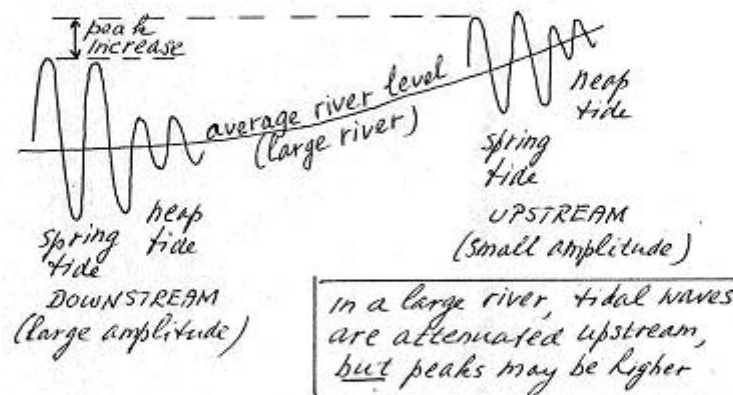 peak
increase
average river level
(large river)
neap
tide
spring
tide
UPSTREAM
(small amplitude)
neap
tide
spring
tide
DOWNSTREAM
(large amplitude)
in a large river, tidal waves
are attenuated upstream,
but peaks may be higher